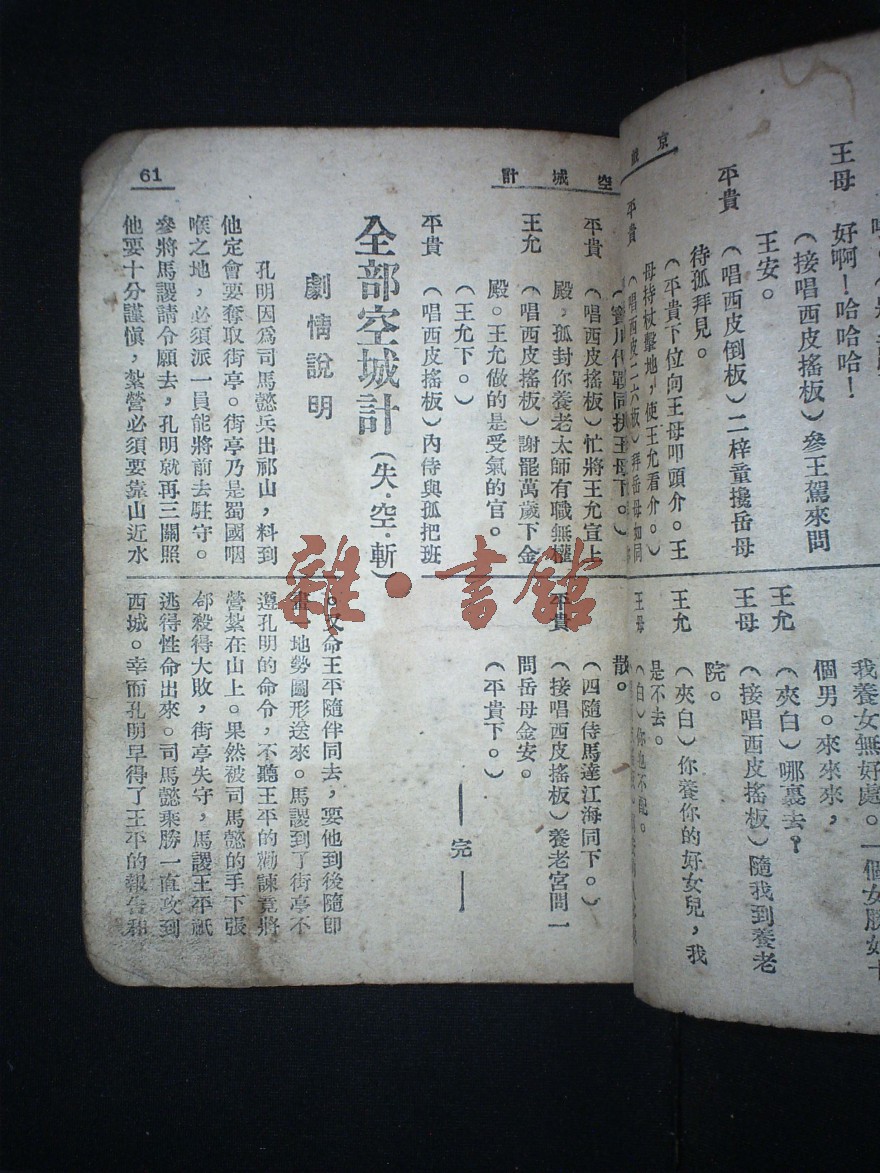 京戲
王母　好啊！哈哈哈！
（接唱西皮搖板）參王駕來問
王安。
平貴　（唱西皮倒板）二梓童攙岳母
待孤拜見。
（平貴下位向王母叩頭介。王
母持杖擊地，使王允看介。）
平貴　（唱西皮二六板）拜岳母如同
我養女無好處。一個女勝如十
個男。來來來，
王允　（夾白）哪裏去？
王母　（接唱西皮搖板）隨我到養老
院。
王允　（夾白）你養你的好女兒，我
是不去。
王母　（白）你也不配。
空城計
61
（寶川代戰同扶王母下。）
平貴　（唱西皮搖板）忙將王允宣上
殿，孤封你養老太師有職無權
王允　（唱西皮搖板）謝罷萬歲下金
殿。王允做的是受氣的官。
（王允下。）
平貴　（唱西皮搖板）內侍與孤把班
散。
（四隨侍馬達江海同下。）
平貴　（接唱西皮搖板）養老宮問一
問岳母金安。
（平貴下。）
——完——
全部空城計（失·空·斬）
劇情說明
孔明因爲司馬懿兵出祁山，料到
他定會要奪取街亭。街亭乃是蜀國咽
喉之地，必須派一員能將前去駐守。
參將馬謖請令願去，孔明就再三關照
他要十分謹愼，紮營必須要靠山近水
。又命王平隨伴同去，要他到後隨即
畫　地勢圖形送來。馬謖到了街亭不
遵孔明的命令，不聽王平的勸諫竟將
營紮在山上。果然被司馬懿的手下張
郃殺得大敗，街亭失守，馬謖王平祇
逃得性命出來。司馬懿乘勝一直攻到
西城。幸而孔明早得了王平的報告和
雜·書館